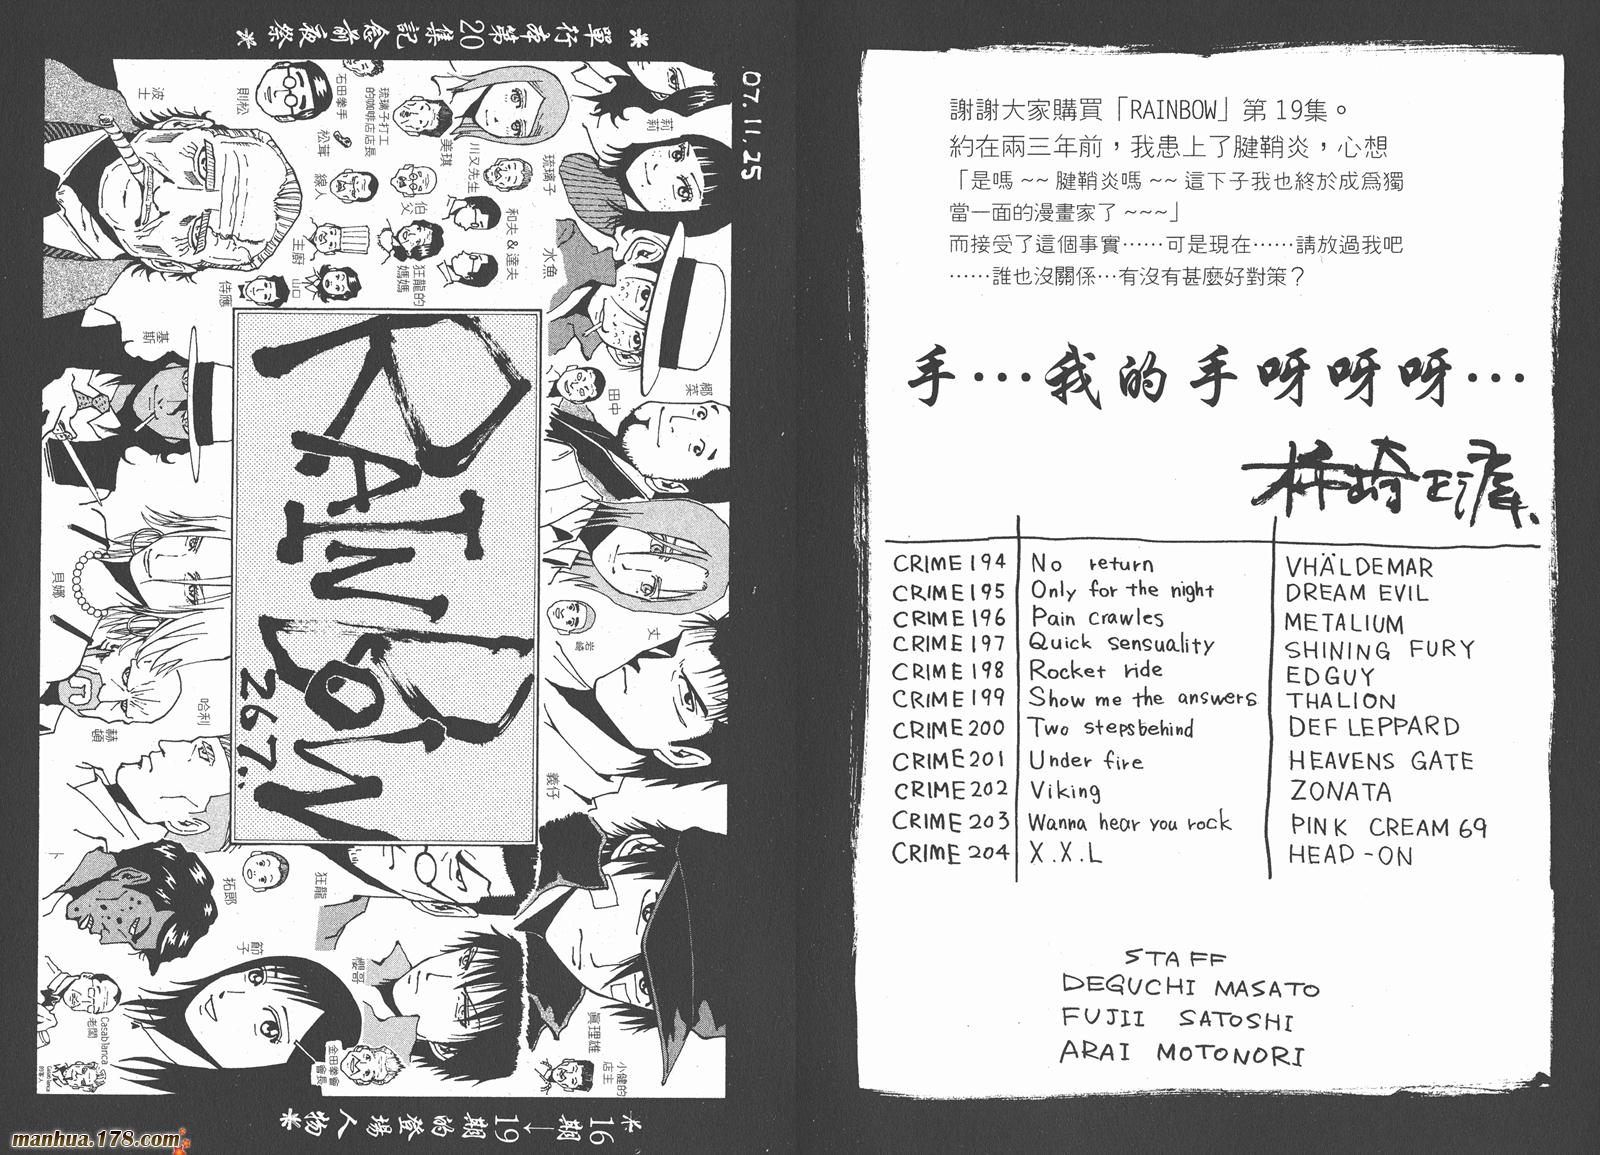 謝謝大家購買「RAINBOW」第19集。
約在兩三年前，我患上了腱鞘炎，心想
「是嗎~~腱鞘炎嗎~~這下子我也終於成為獨
當一面的漫畫家了~~~」
而接受了這個事實……可是現在……請放過我吧
……誰也沒關係…有沒有甚麼好對策？
手…我的手呀呀呀…
CRIME194 No return VHÄLDEMAR
CRIME195 Only for the night DREAM EVIL
CRIME196 Pain crawles METALIUM
CRIME197 Quick sensuality SHINING FURY
CRIME198 Rocket ride EDGUY
CRIME199 Show me the answers THALION
CRIME200 Two stepsbehind DEF LEPPARD
CRIME201 Under fire HEAVENS GATE
CRIME202 Viking ZONATA
CRIME203 Wanna hear you rock PINK CREAM 69
CRIME204 X.X.L HEAD-ON
STAFF
DEGUCHI MASATO
FUJII SATOSHI
ARAI MOTONORI
*單行本第20集記念前夜祭*
07.11.25
RAINBOW
267..
莉莉
美琪
琉璃子打工
的咖啡店店長
石田拳手
則松
波士
松茸
線人
川又先生
琉璃子
伯父
和夫&達夫
水魚
主廚
山口
狂龍的
媽媽
侍應
基斯
椰菜
田中
貝娜
丈
岩崎
哈利
赫頓
義仔
卜
拓郎
狂龍
節子
櫻哥
眞理雄
小健的
店主
金田拳會
會長
Casablanca
老闆
Casablanca
的客人
*16期→19期的登場人物*
manhua.178.com